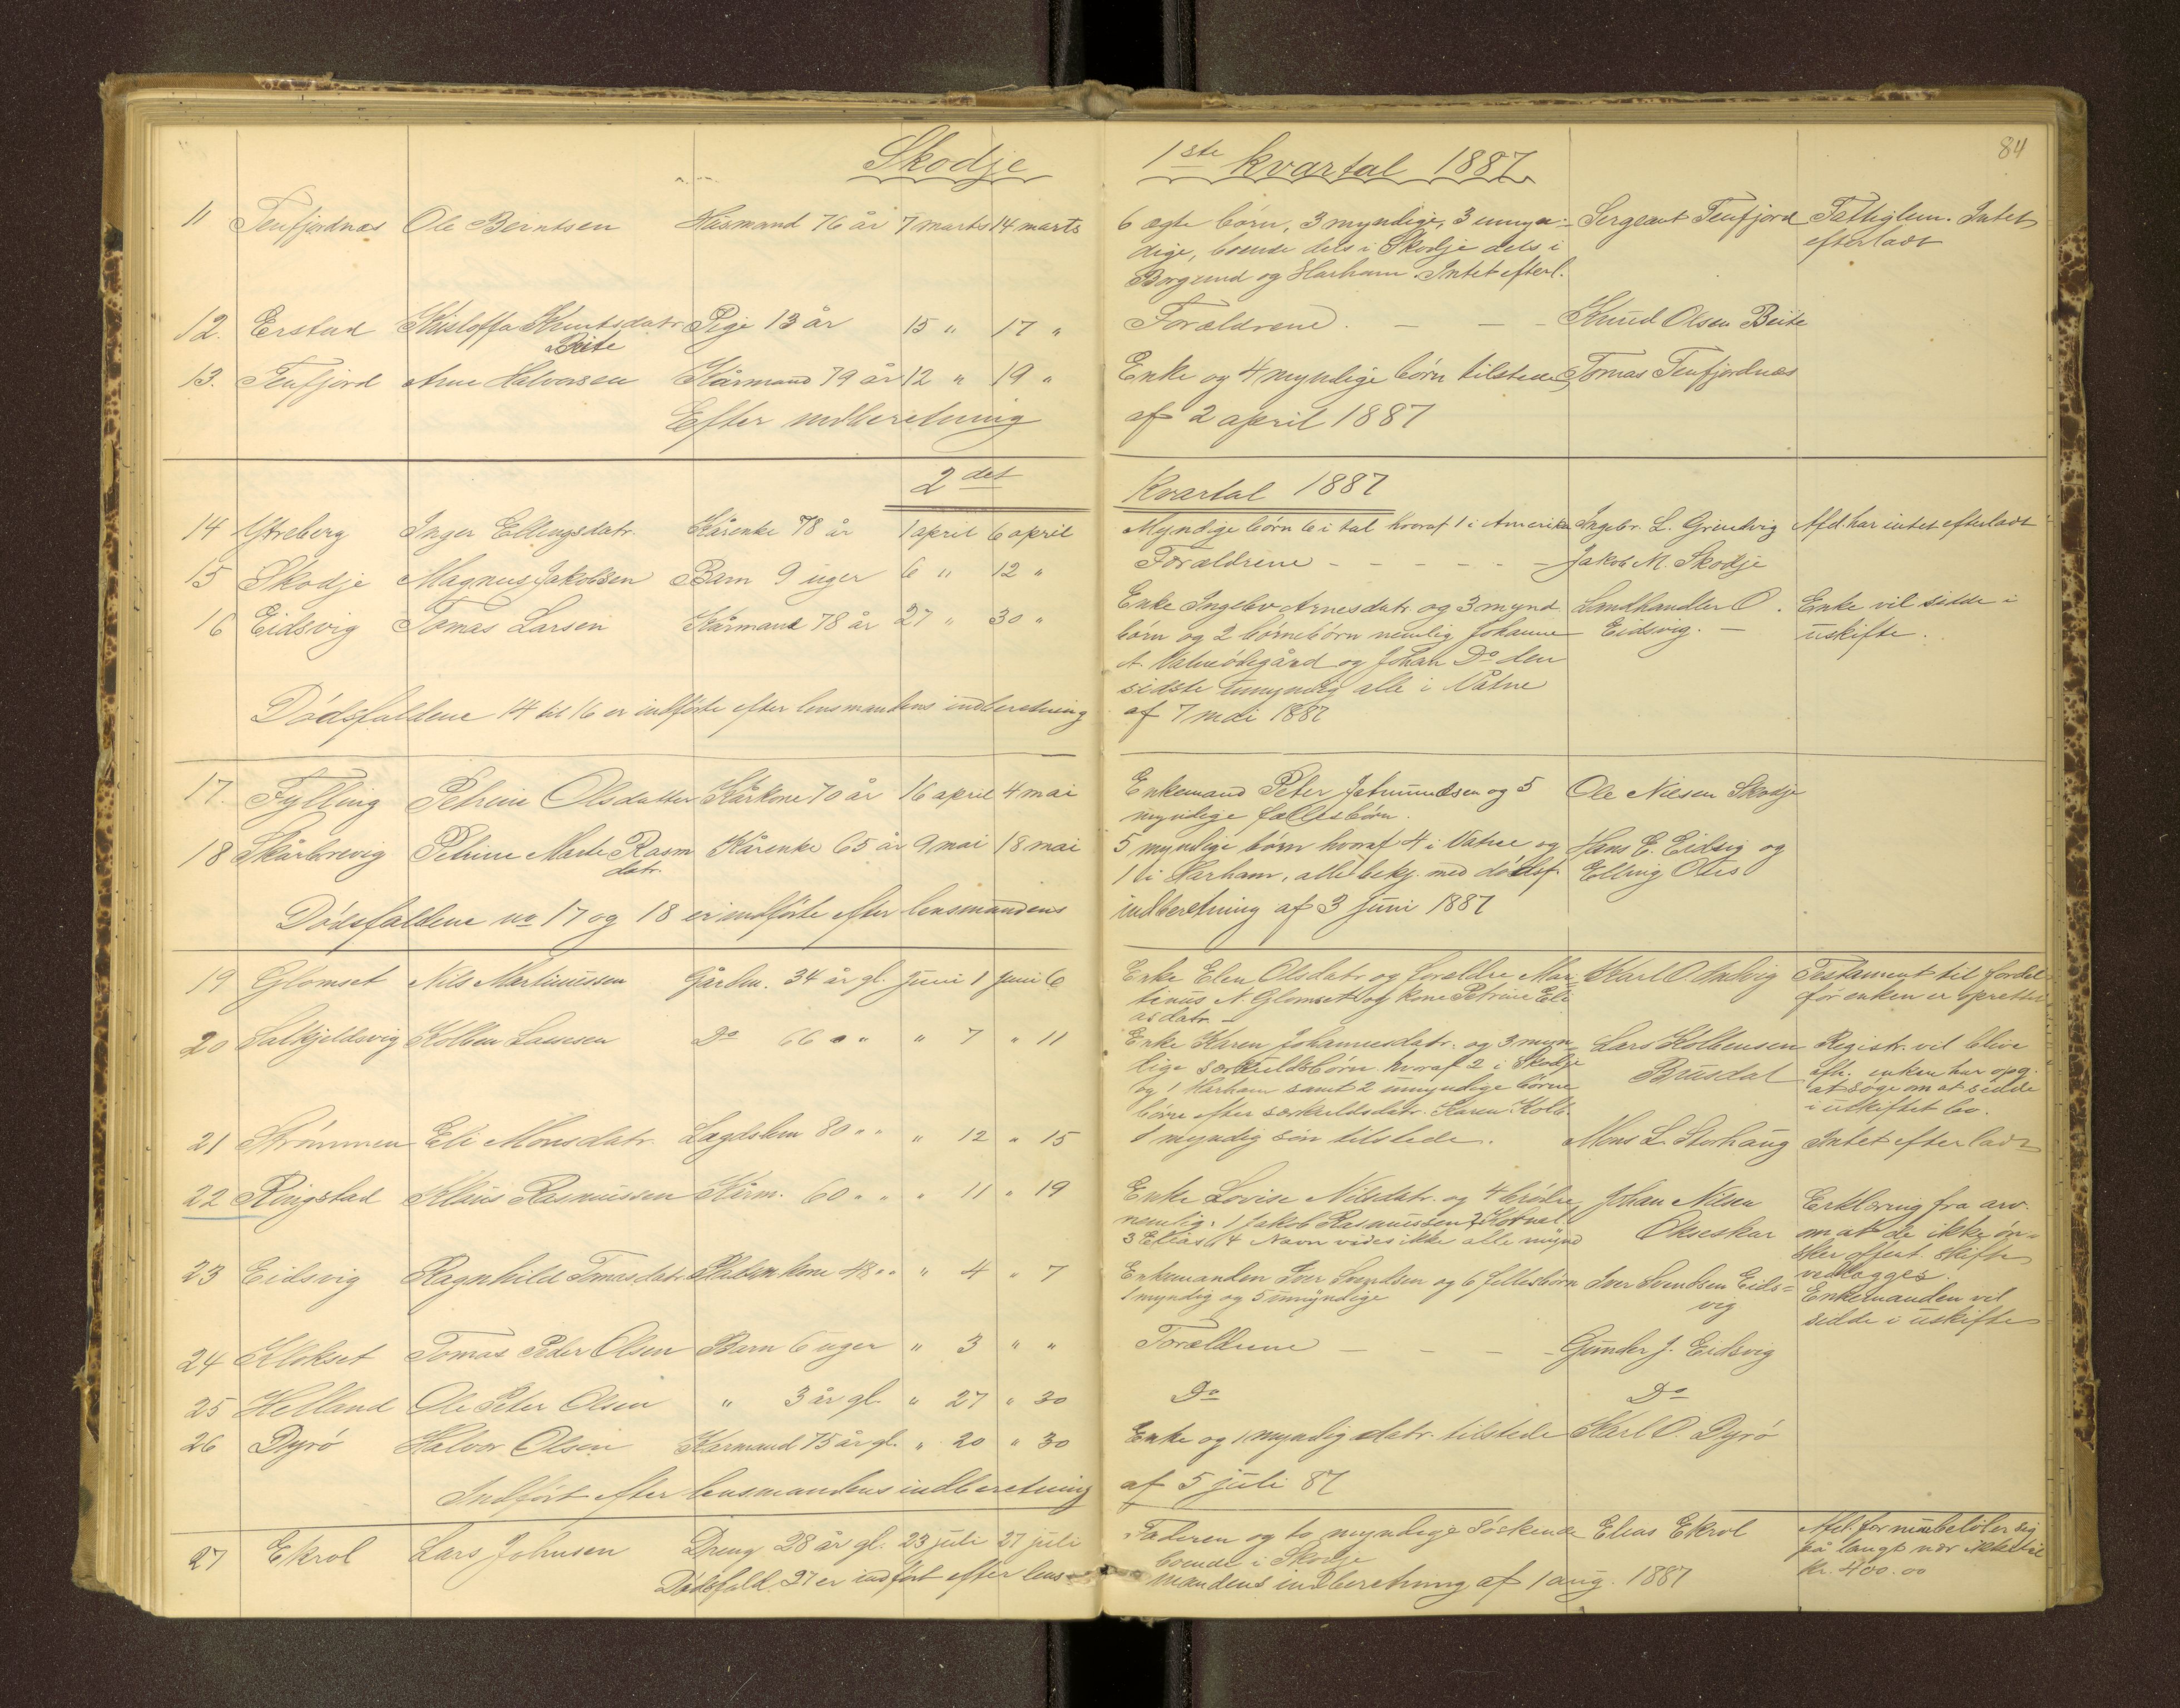 84
Skodje 1ste kvartal 1887
11 Tenfjordnæs Ole Berntsen Husmand 76 år 7 marts 14 marts 6 ægte børn, 3 myndige, 3 umyn- Sergeant Tenfjord Fattiglem. Intet
dige, boende dels i Skodje dels i efterladt
Borgund og Harham. Intet efterl.
12. Erstad Kristoffa Knutsdatr. Pige 13 år 15 " 17 " Forældrene. — — — Knud Olsen Beite
Beite
13. Tenfjord Arne Halvorsen Kårmand 79 år 12 " 19 " Enke og 4 myndige børn tilstede Tomas Tenfjordnæs
Efter indberetning af 2 april 1887
2det Kvartal 1887
14 Ytreberg Inger Ellingsdatr. Kårenke 78 år 1 april 6 april Myndige børn 6 i tal hvoraf 1 i Amerika Ingebr. L. Grindvig Afd. har intet efterladt
15 Skodje Magnus Jakobsen Barn 9 uger 6 " 12 " Forældrene - - - - - Jakob M. Skodje
16 Eidsvig Tomas Larsen Kårmand 78 år 27 " 30 " Enke Ingebr Arnesdatr. og 3 mynd. Landhandler O. Enke vil sidde i
børn og 2 børnebørn nemlig Johanne Eidsvig. — uskifte.
A. Vatneødegård og Johan Do den
sidste umyndig alle i Vatne
Dødsfaldene 14 til 16 er indførte efter lensmandens indberetning af 7 mai 1887
17. Fylling Petrine Olsdatter Kårkone 70 år 16 april 4 mai Enkemand Peter Jetmundsen og 5 Ole Nilsen Skodje
myndige fællesbørn.
18 Skårbrevig Petrine Marte Rasm Kårenke 65 år 9 mai 18 mai 5 myndige børn hvoraf 4 i Vatne og Hans E. Eidsvig og
datr. 1 i Harham, alle bekj. med dødsf. Elling Otis
Dødsfaldene no 17 og 18 er indførte efter lensmandens indberetning af 3 juni 1887
19 Glomset Nils Martinussen Gårdm. 34 år gl. Juni 1 Juni 6 Enke Elen Olsdatr. og forældre Mar- Karl O. Indvig Testament til fordel
tinus N. Glomset og kone Petrine Eli for enken er oprettet
asdatr. —
20 Solkjeldsvig Kolben Larsen Do 66 " " " 7 " 11 Enke Karen Johannesdatr. og 3 myn- Lars Kolbensen Registr. vil blive
dige særkuldsbørn hvoraf 2 i Skodje Brusdal afh. enken har opg.
og 1 Harham samt 2 umyndige børne at søge om at sidde
børn efter særkuldsdatr. Karen Kolb. i uskiftet bo.
21 Strømmen Eli Monsdatr. Lægdslem 80 " " " 12 " 15 1 myndig søn tilstede. Mons L. Storhaug Intet efterladt
22 Ringstad Klaus Rasmussen Kårm. 60 " " " 11 " 19 Enke Lovise Nilsdatr. og 4 brødre Johan Nilsen Erklæring fra arv.
nemlig: 1 Jakob Rasmussen 2 Kornel. Okseskar om at de ikke øn-
3 Elias, 4 Navn vides ikke alle mynd sker offent. skifte
vedlægges.
23 Eidsvig Ragnhild Tomasdatr. Pladsm. kone 48 " " " 4 " 7 Enkemanden Iver Svendsen og 6 fellesbørn Iver Svendsen Eids- Enkemanden vil
1 myndig og 5 umyndige vig sidde i uskifte
24 Klokset Tomas Peder Olsen Barn 6 uger " 3 " " Forældrene — — — — Gunder J. Eidsvig
25 Helland Ole Peter Olsen " 3 år gl. " 27 " 30 Do Do
26 Dyrø Halvor Olsen Kårmand 75 år gl. " 20 " 30 Enke og 1 myndig datr. tilstede Karl O. Dyrø
Indført efter lensmandens indberetning af 5 juli 87
27 Ekrol Lars Johnsen Dreng 28 år gl. 23 juli 27 juli Faderen og to myndige søskende Elias Ekrol Afd. formue beløber sig
boende i Skodje på langt nær ikke til
Dødsfald 27 er indført efter lens- mandens indberetning af 1 aug. 1887 kr. 400.00